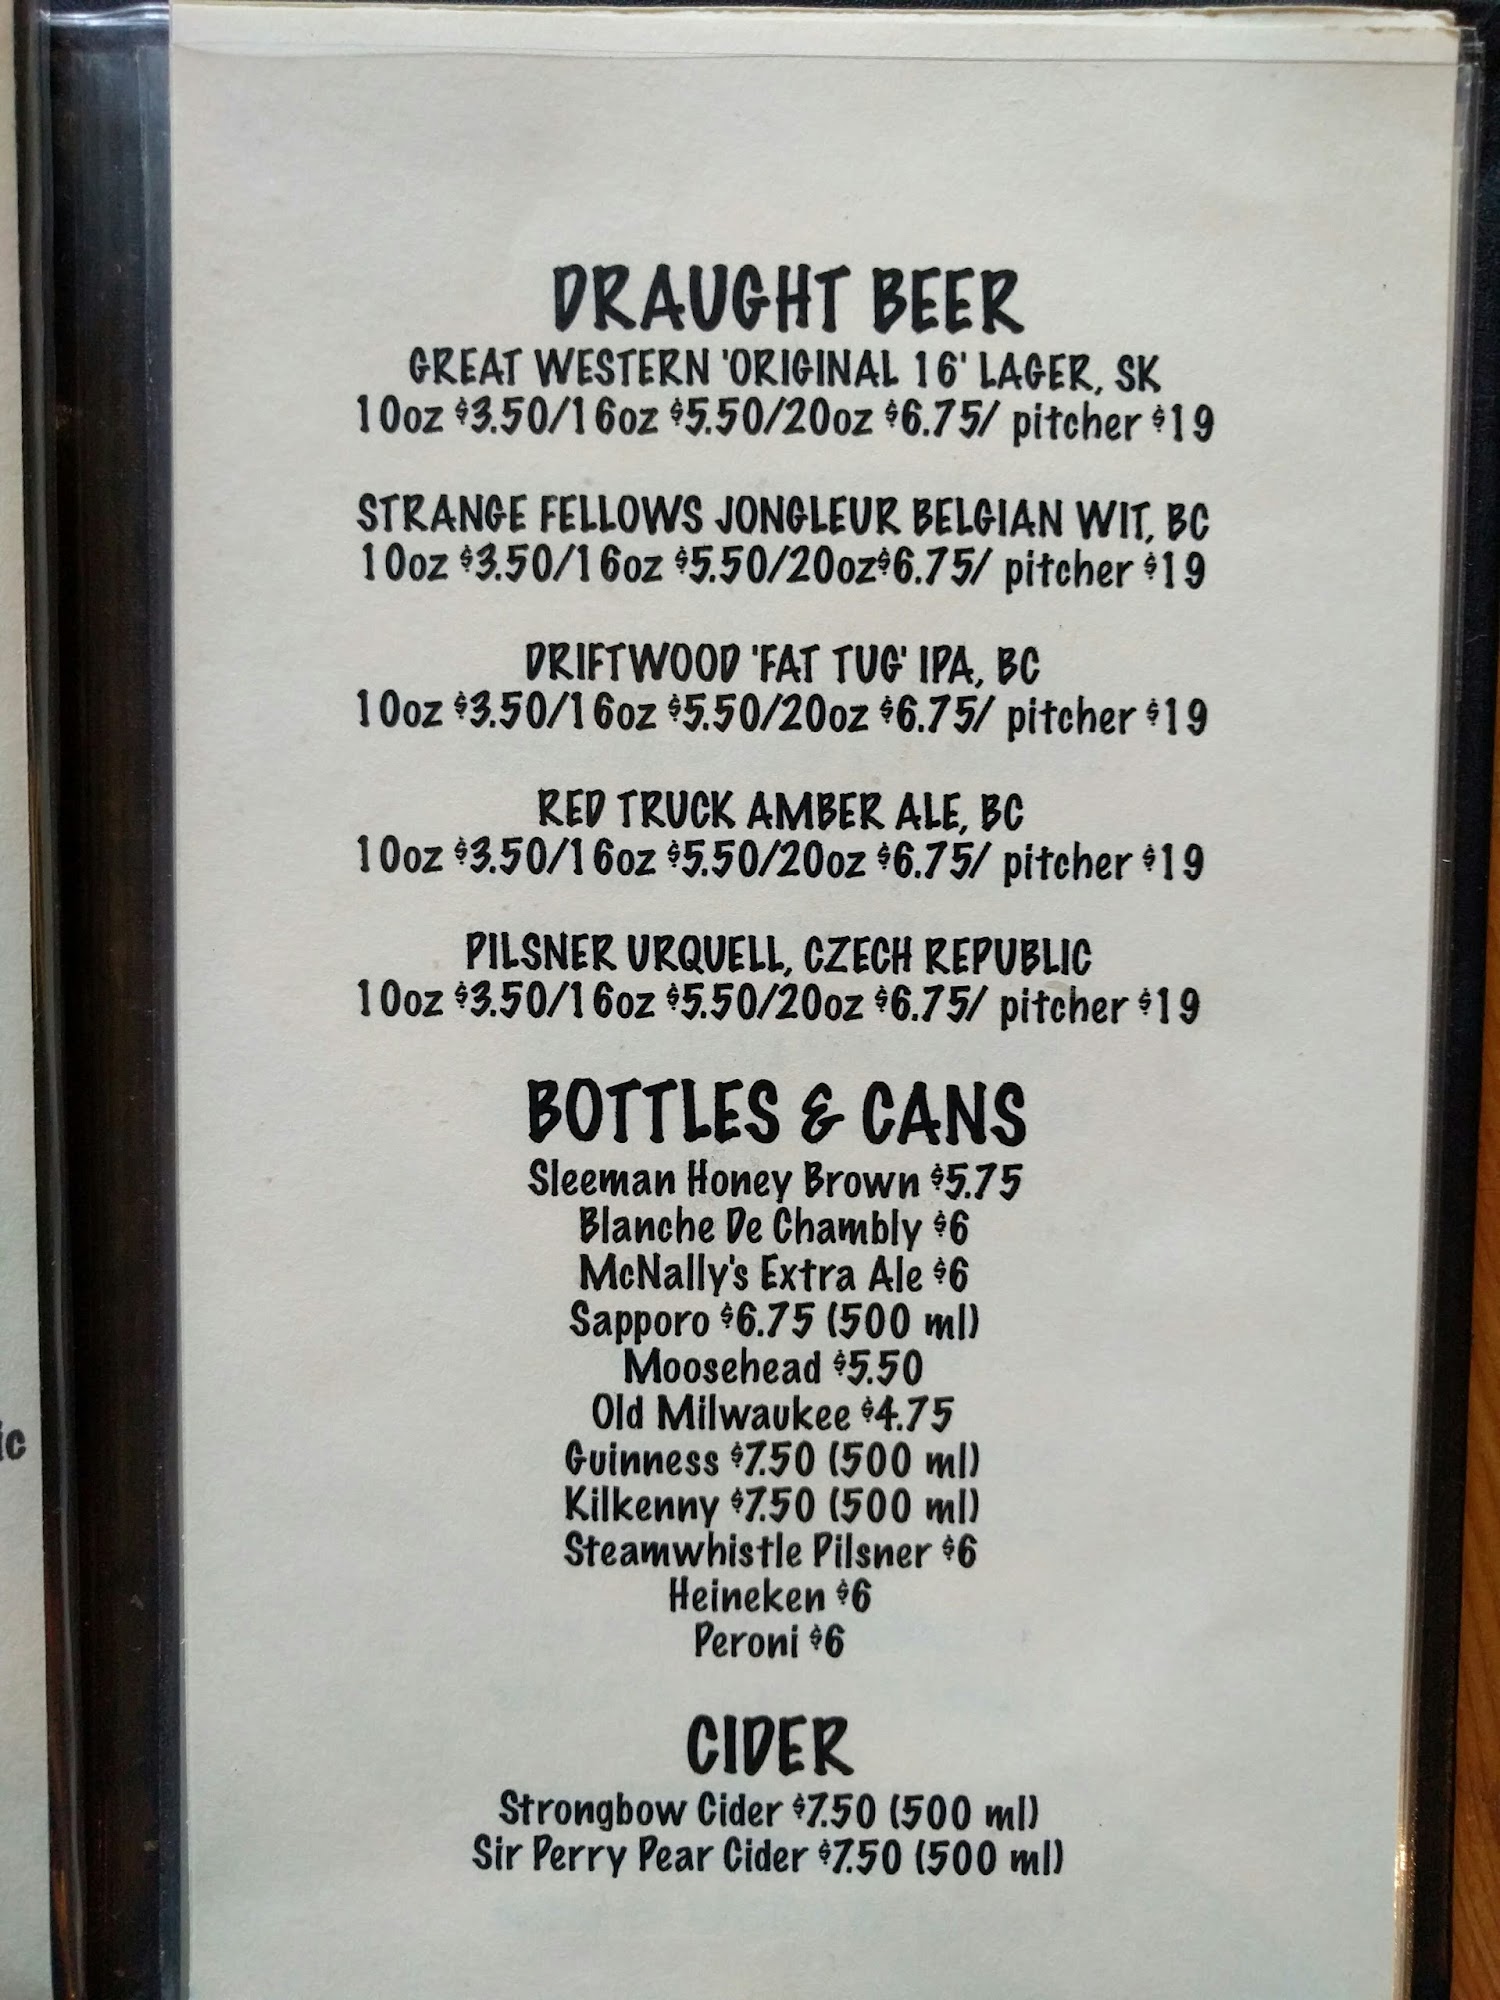 DRAUGHT BEER
GREAT WESTERN 'ORIGINAL 16' LAGER, SK
10oz $3.50/16oz $5.50/20oz $6.75/ pitcher $19
STRANGE FELLOWS JONGLEUR BELGIAN WIT, BC
10oz $3.50/16oz $5.50/20oz$6.75/ pitcher $19
DRIFTWOOD 'FAT TUG' IPA, BC
10oz $3.50/16oz $5.50/20oz $6.75/ pitcher $19
RED TRUCK AMBER ALE, BC
10oz $3.50/16oz $5.50/20oz $6.75/ pitcher $19
PILSNER URQUELL, CZECH REPUBLIC
10oz $3.50/16oz $5.50/20oz $6.75/ pitcher $19
BOTTLES & CANS
Sleeman Honey Brown $5.75
Blanche De Chambly $6
McNally's Extra Ale $6
Sapporo $6.75 (500 ml)
Moosehead $5.50
Old Milwaukee $4.75
Guinness $7.50 (500 ml)
Kilkenny $7.50 (500 ml)
Steamwhistle Pilsner $6
Heineken $6
Peroni $6
CIDER
Strongbow Cider $7.50 (500 ml)
Sir Perry Pear Cider $7.50 (500 ml)